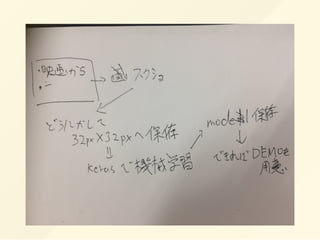 ・映画から
・
スクショ
どうにかして
32px×32pxへ保存
kerasで機械学習
model保存
できればDEMOを
用意